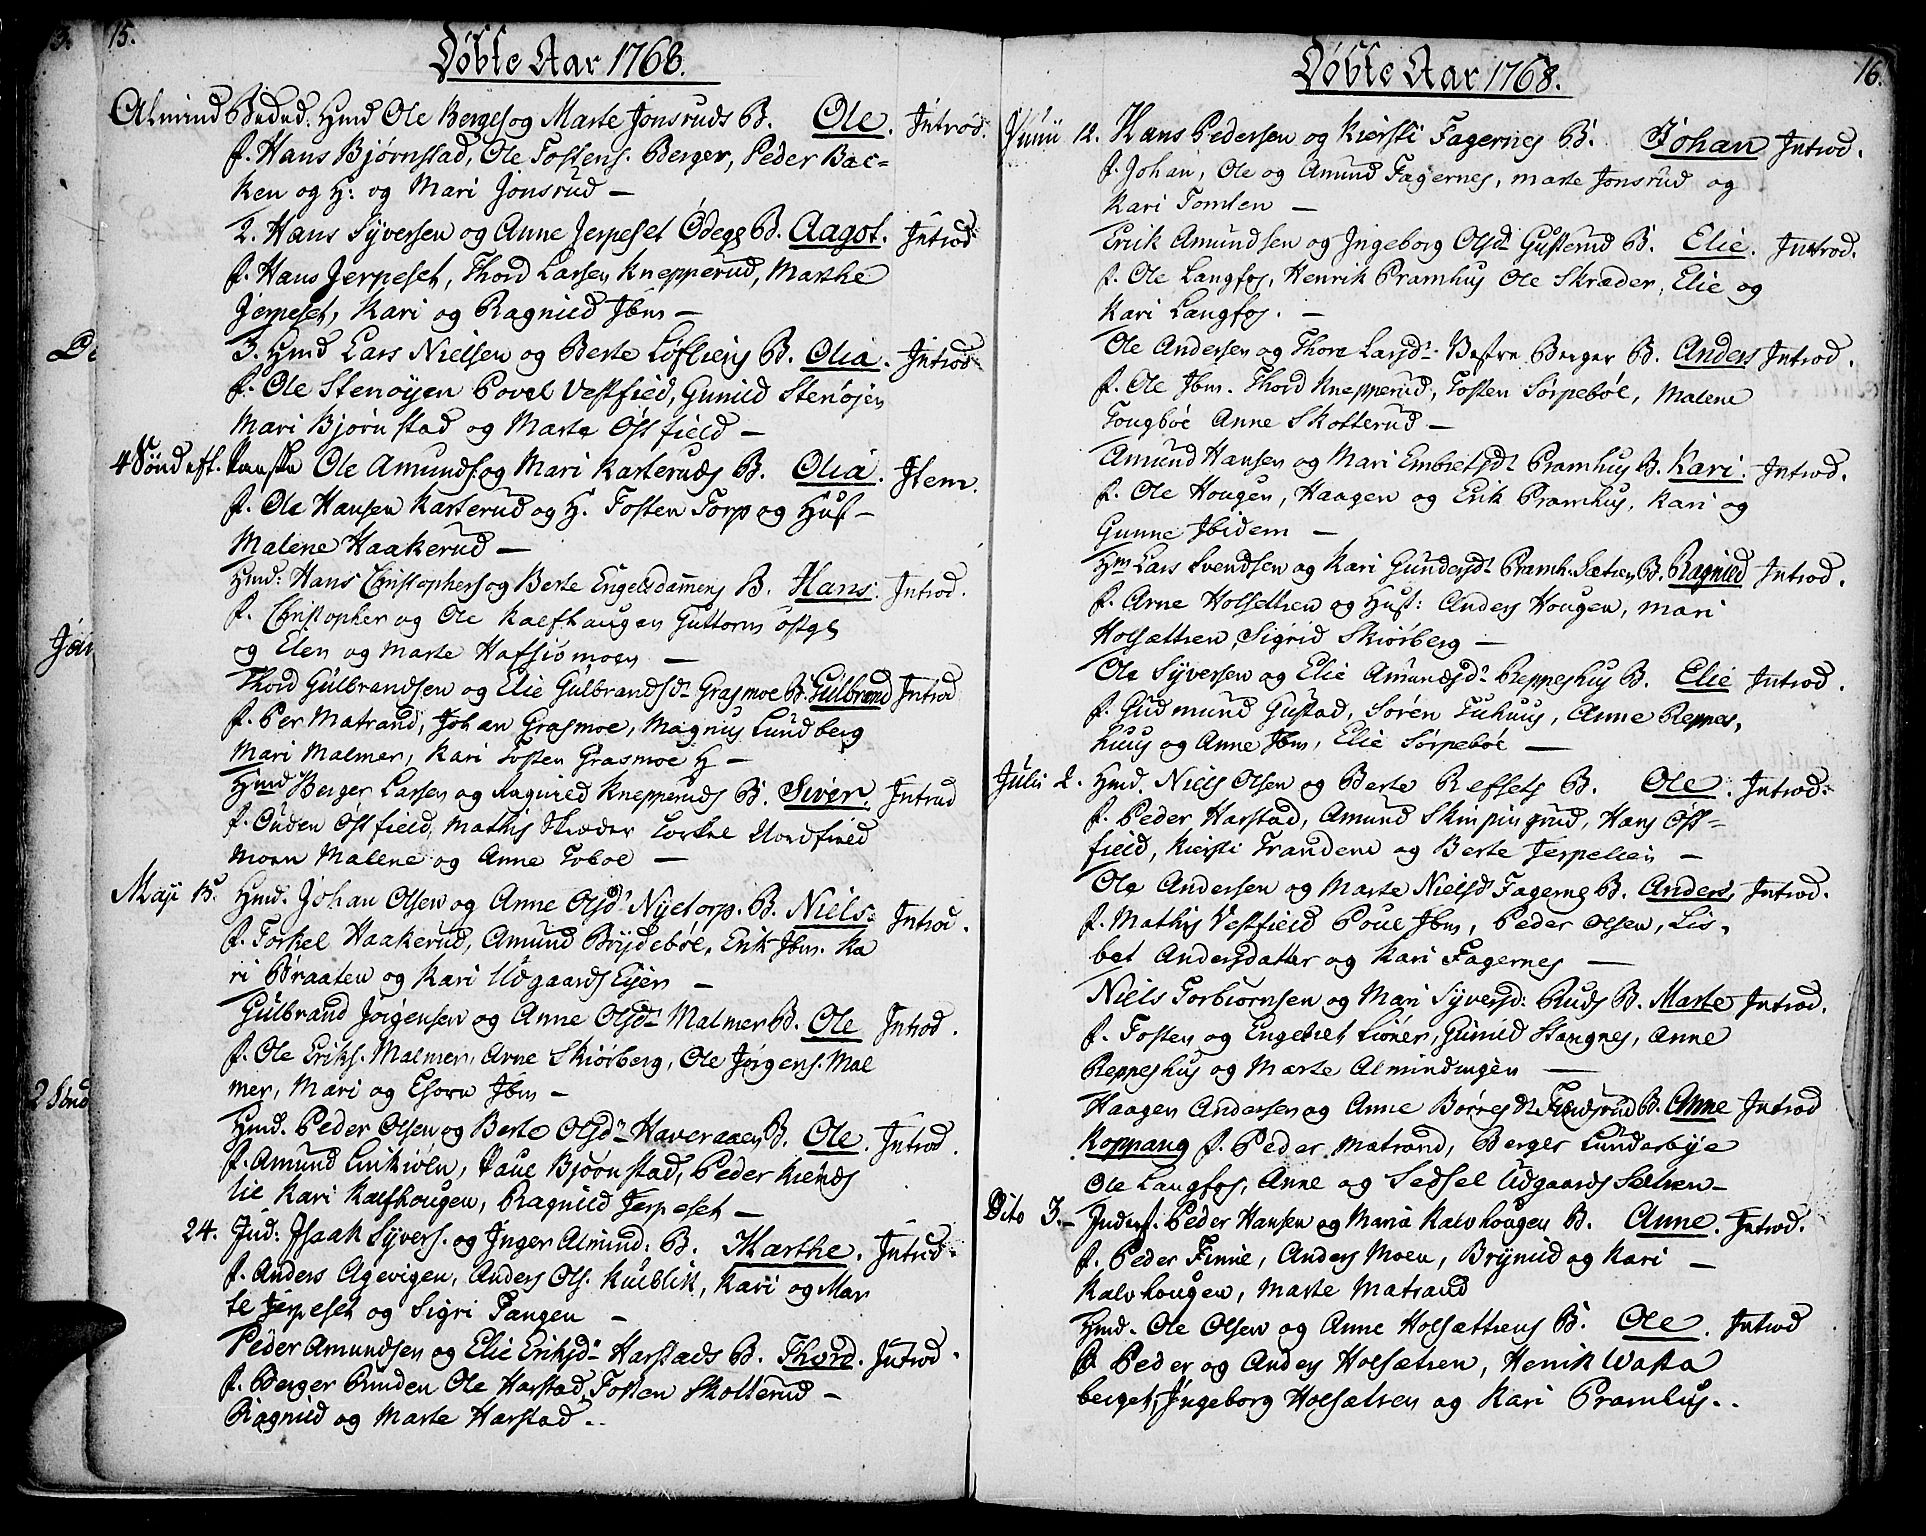 15.
Døbte Aar 1768.
Almind Bededag. Hmd Ole Berges og Marte Jonsruds B. Ole. Introd.
f. Hans Bjørnstad, Ole Tostens. Berger, Peder Bac-
ken og H: og Mari Jonsrud —
2. Hans Syversen og Anne Jerpeset Ødegs B. Aagot. Introd
f. Hans Jerpeset, Thord Larsen Knepperud, Marthe
Jerpeset, Kari og Ragnild Jbm —
3. Hmd Lars Nielsen og Berte Løfliens B. Olia. Introd
f. Ole Stenøyen Povel Vestfield, Gunild Stenøjen
Mari Bjørnstad og Marte Østfield —
4 Sønd eft. Paaske Ole Amunds. og Mari Karteruds B. Olia. Item.
f. Ole Hansen Karterud og H. Tosten Torp og Hust-
Malene Haakerud —
Hmd: Hans Christophers. og Berte Engelsdammens B. Hans. Introd.
f. Christopher og Ole Kalfhaugen Guttorm
og Elen og Marte Hafsiømoen —
Thord Gulbrandsen og Elie Gulbrandsdr Grasmoe B. Gulbrand Introd
f. Per Matrand, Johan Grasmoe, Magnus Lundberg
Mari Malmer, Kari Tosten Grasmoe H —
Hmd Berger Larsen og Ragnild Knepperuds B. Siver. Introd
f. Ouden Østfield, Mathis Skræder Torkel Nordfield
moen Malene og Anne Toboe —
Maji 15. Hmd. Johan Olsen og Anne Olsdr Nyetorp. B. Niels. Introd.
f. Torkel Haakerud, Amund Brydebøl, Erik Jbm. Ka
ri Braaten og Kari Udgaards Eier —
Gulbrand Jørgensen og Anne Olsdr Malmer B. Ole Introd.
f. Ole Eriks. Malmer, Arne Skiørberg, Ole Jørgens. Mal
mer, Mari og Thora Jbm —
Hmd. Peder Olsen og Berte Olsdr Haveraaen B. Ole. Introd.
f. Amund Linkiøln, Paul Bjørnstad, Peder Kiends
lie Kari Kalfhougen, Ragnild Jerpeset —
24. Jnd: Isaak Syvers. og Inger Almind: B. Marthe. Introd.
f. Anders Agevigen, Anders Ols. Kulblik, Kari og Mar
te Jerpeset og Sigri Tangen —
Peder Amundsen og Elie Eriksdr Harstads B. Thord. Introd.
f. Berger Bunden Ole Harstad, Tosten Skotterud —
Ragnild og Marte Harstad..
16.
Døbte Aar 1768.
Junii 12. Hans Pedersen og Kiersti Fagernes B. Johan Introd.
f. Johan, Ole og Amund Fagernes, Marte Jonsrud og
Kari Tomten —
Erik Amundsen og Ingeborg Olsdr Gusterud B. Elie. Introd.
f. Ole Langfos, Henrik Pramhus Ole Skræder, Elie og
Kari Langfos. —
Ole Andersen og Thore Larsdr. Vestre Berger B. Anders Introd.
f. Ole Jbm. Thord Knepperud, Tosten Sørpebøl, Malene
Tougbøl Anne Skotterud —
Amund Hansen og Mari Embretsdr Pramhus B. Kari. Introd.
f. Ole Hougen, Haagen og Erik Pramhus, Kari og
Gunne Jbidem —
Hm Lars Svendsen og Kari Gundersdr Pramh. Sætren B. Ragnild Introd.
f. Arne Holsettren og Hust: Anders Hougen, Mari
Holsættren, Sigrid Skiørberg —
Ole Syversen og Elie Amundsdr Reppeshus B. Elie Introd.
f. Gudmund Gustad, Søren Tuhuus, Anne Reppes,
huus og Anne Jbm, Elie Sørpebøl —
Julii 2. Hmd. Niels Olsen og Berte Refsets B. Ole. Introd.
f. Peder Harstad, Amund Skinpingrud, Hans Øst-
field, Kiersti Tranden og Berte Jerpelien —
Ole Andersen og Marte Nielsdr Fagernes B. Anders, Introd.
f. Mathis Vestfield Poul Jbm, Peder Olsen, Lis-
bet Andersdatter og Kari Fagernes —
Niels Torbiørnsen og Mari Syversd: Ruds B. Marte Introd.
f. Tosten og Engebret Liøner, Gunild Stangnes, Anne
Reppeshus og Marte Almindingen —
Haagen Andersen og Anne Børresdr B. Anne Introd
Koppang f. Peder Matrand, Berger Lundersbye
Ole Langfos, Anne og Sedsel Udgaards Sættren —
Dito 3. — Inderst. Peder Hansen og Maria Kalvhougen B. Anne. Introd.
f. Peder Finnie, Anders Moen, Brynild og Kari —
Kalvhougen, Marte Matrand
Hmd. Ole Olsen og Anne Holsættrens B. Ole. Introd
f. Peder og Anders Holsætren, Henrik Wasta
berget, Ingeborg Holsætren og Kari Pramhus..